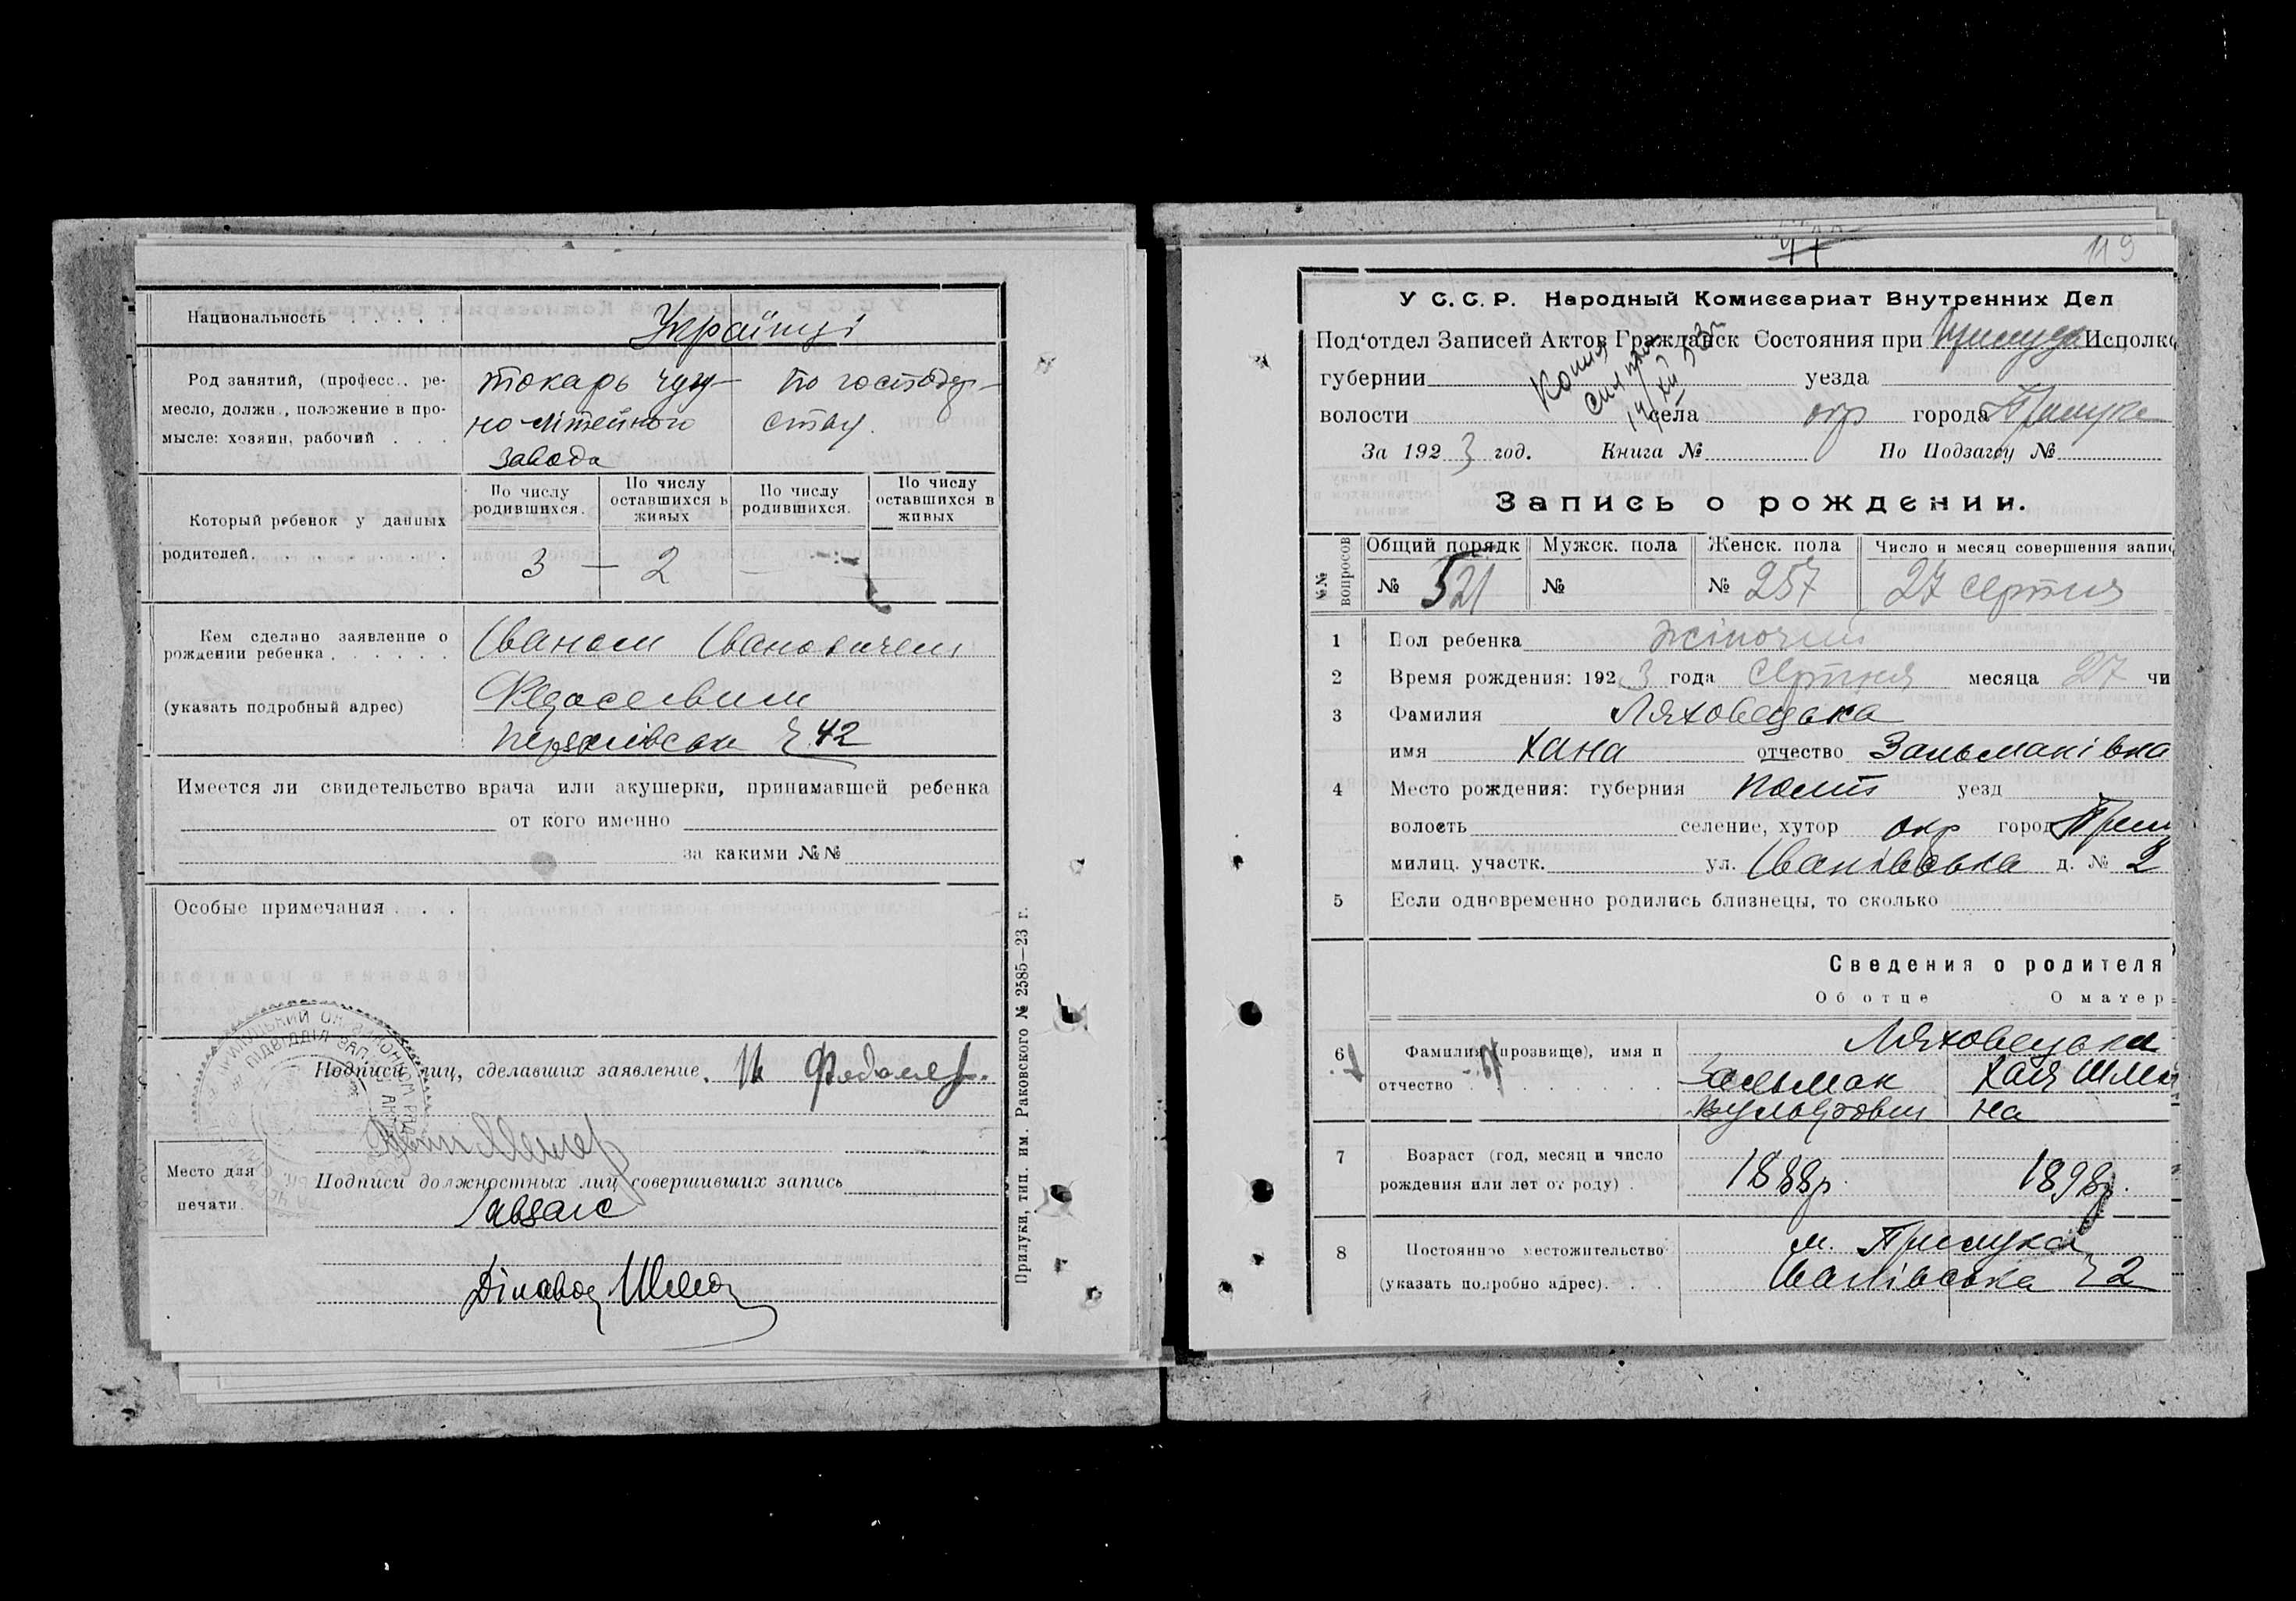 Национальность . . . . . Українці
Род занятий, (професс., ре-
месло, должн., положение в про-
мысле: хозяин, рабочий . . .
токарь чугу-
но-літейного
завода
по господар-
ству.
Который ребенок у данных
родителей. . . . . . . .
По числу
родившихся.
По числу
оставшихся в
живых
По числу
родившихся.
По числу
оставшихся в
живых
3 — 2 —
Кем сделано заявление о
рождении ребенка . . . . . .
(указать подробный адрес)
Іваном Івановичем
Федосеевим
42
Имеется ли свидетельство врача или акушерки, принимавшей ребенка
от кого именно
за какими №№
Особые примечания . . .
Подписи лиц, сделавших заявление.
Место для
печати.
Подписи должностных лиц совершивших запись
Завзагс
Діловод
Прилуки, тип. им. Раковского № 2585—23 г.
119
У С. С. Р. Народный Комиссариат Внутренних Дел
Под'отдел Записей Актов Гражданск Состояния при Прилуцк Исполко
губернии уезда
волости села окр города Прилука
Копия
14/XII 53г
За 1923 год. Книга № По Подзагсу №
Запись о рождении.
№№ вопросов
Общий порядк Мужск. пола Женск. пола Число и месяц совершения запис
№ 521 № № 257 27 серпня
1 Пол ребенка жіночий
2 Время рождения: 1923 года серпня месяца 27 чи
3 Фамилия Ляховецька
имя Хана отчество Зальманівна
4 Место рождения: губерния Полт уезд
волость селение, хутор окр город Прил
милиц. участк. ул. Іванівська д. № 2
5 Если одновременно родились близнецы, то сколько
Сведения о родителя
Об отце О матер
6 Фамилия (прозвище), имя и
отчество . . . . . . . .
Ляховецьки
Зальман
Хая Шлем
на
7 Возраст (год, месяц и число
рождения или лет от роду) .
1888р. 1898р.
8 Постоянное местожительство
(указать подробно адрес). . .
м. Прилука
Іванівська 2